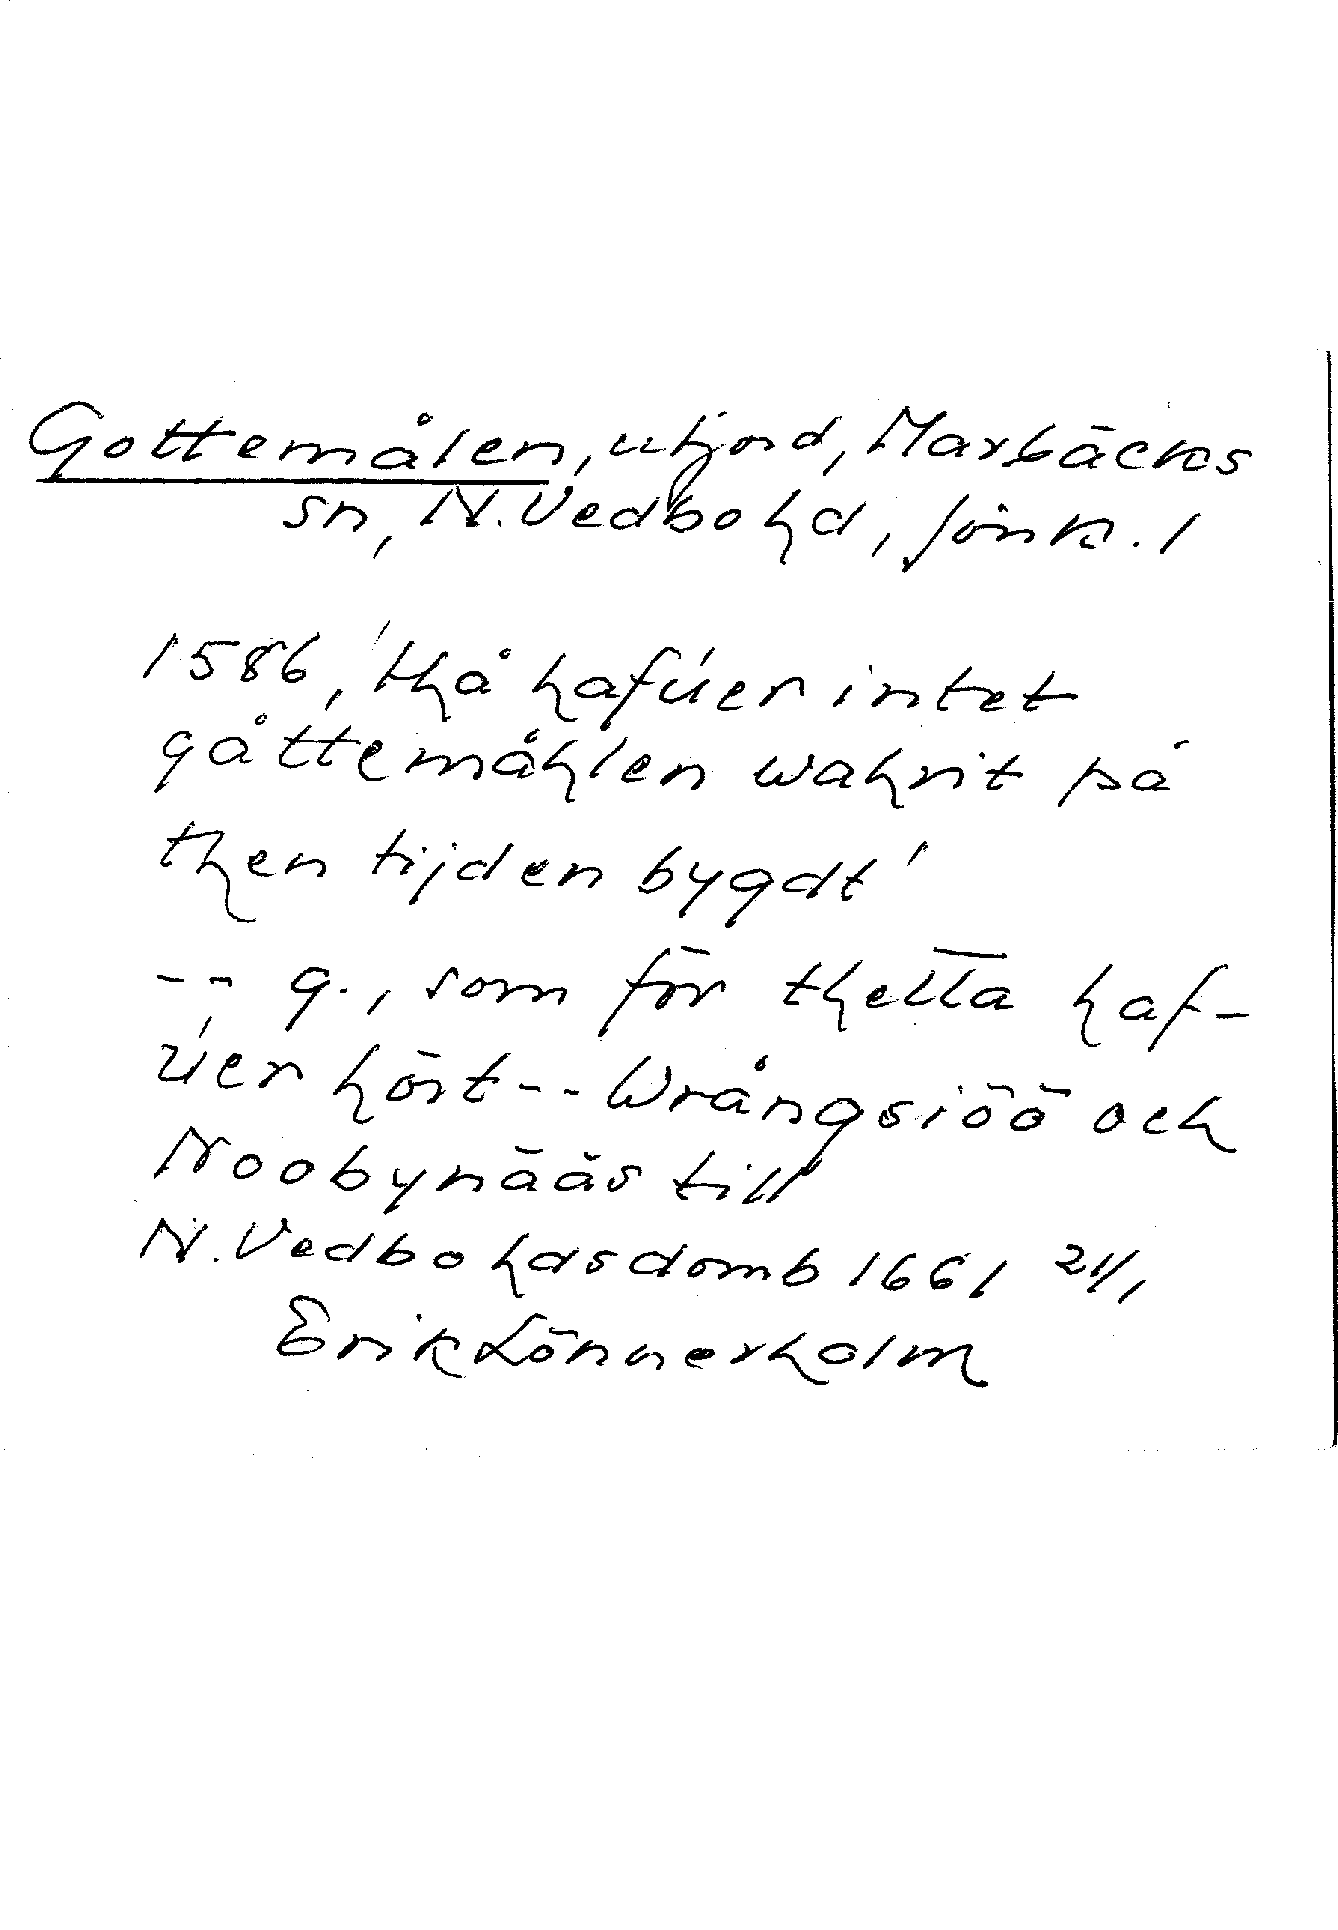 Gottemålen, utjord, Marbäcks
sn, N. Vedbo hd, Jönk. l
1586, 'thå hafúer intet
gåttemåhlen wahrit på
then tijden bygdt'
-- g., som för thetta haf-
úer hört -- Wrångsiöö och
Noobynääs till
N. Vedbo hds domb 1661 21/1
Erik Lönnerholm